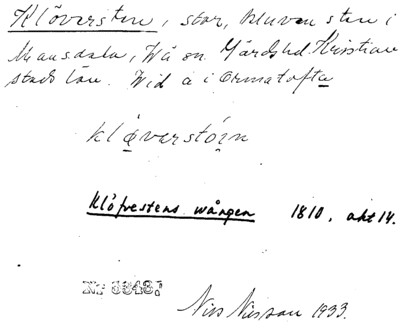 Klöversten, stor, kluven sten i
Mansdala, Wå on Gärds hd. Kristian
stads län. Wid å i Ormatofta
klǫverstoin
Klöfvestens wången 1810, akt 14.
Nr 3348:
Nils Nilsson 1933.